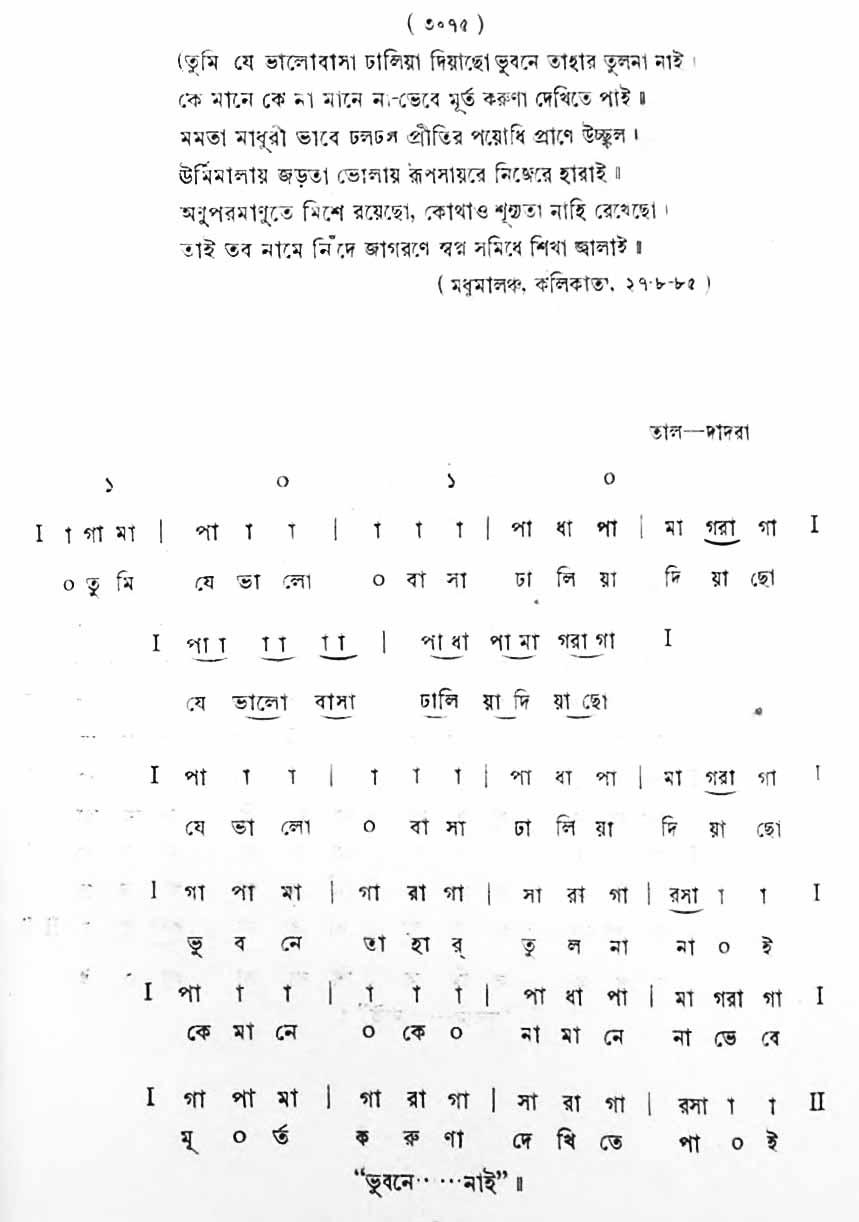 ( ৩০৭৫ )
(তুমি যে ভালোবাসা ঢালিয়া দিয়াছো ভুবনে তাহার তুলনা নাই।
কে মানে কে না মানে না-ভেবে মূর্ত করুণা দেখিতে পাই॥
মমতা মাধুরী ভাবে ঢলঢল প্রীতির পয়োধি প্রাণে উচ্ছ্বল।
ঊর্মিমালায় জড়তা ভোলায় রূপসায়রে নিজেরে হারাই॥
অণুপরমাণুতে মিশে রয়েছো, কোথাও শূন্যতা নাহি রেখেছো।
তাই তব নামে নিঁদে জাগরণে স্বপ্ন সমিধে শিখা জ্বালাই॥
( মধুমালঞ্চ, কলিকাতা, ২৭-৮-৮৫ )
তাল—দাদরা
১ ০ ১ ০
I া গা মা | পা া া | া া া | পা ধা পা | মা গরা গা I
০ তু মি যে ভা লো ০ বা সা ঢা লি য়া দি য়া ছো
I পা া া া া া | পা ধা পা মা গরা গা I
যে ভালো বাসা ঢালি য়া দি য়া ছো
I পা া া | া া া | পা ধা পা | মা গরা গা I
যে ভা লো ০ বা সা ঢা লি য়া দি য়া ছো
I গা পা মা | গা রা গা | সা রা গা | রসা া া I
ভু ব নে তা হা র্ তু ল না না ০ ই
I পা া া | া া া | পা ধা পা | মা গরা গা I
কে মা নে ০ কে ০ না মা নে না ভে বে
I গা পা মা | গা রা গা | সা রা গা | রসা া া II
মূ ০ র্ত ক রু ণা দে খি তে পা ০ ই
“ভুবনে······নাই”॥